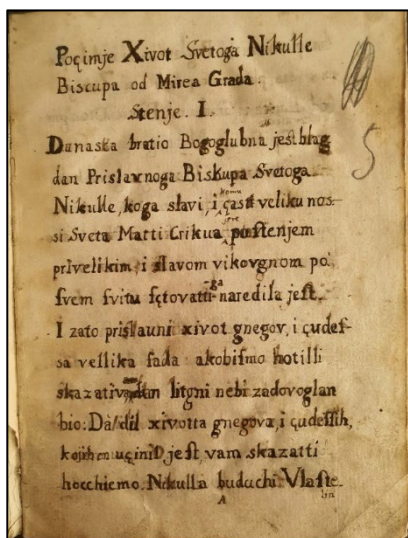 Poçimje Xivot Svetoga Nikulle
Biscupa od Mirea Grada.
Stenje. I.
Danaska bratio Bogoglubna jest blag
dan Prislavnoga Biskupa Svetoga
komu
Nikulle, koga slavi, i çast veliku nos-
si Sveta Matti Crikua, poštenjem
privelikim, i slavom vikovgnom po
ga
svem svitu sctovatti naredila jest.
I zato prislauni xivot gnegov, i çudes-
sa vellika sada akobismo hotilli
skazativam dan litgni nebi zadovoglan
bio: Da/dil xivotta gnegova, i çudessih,
kojih en uçiniD jest, vam skazatti
hocchiemo. Nikulla buduchi Vlaste
lin
5